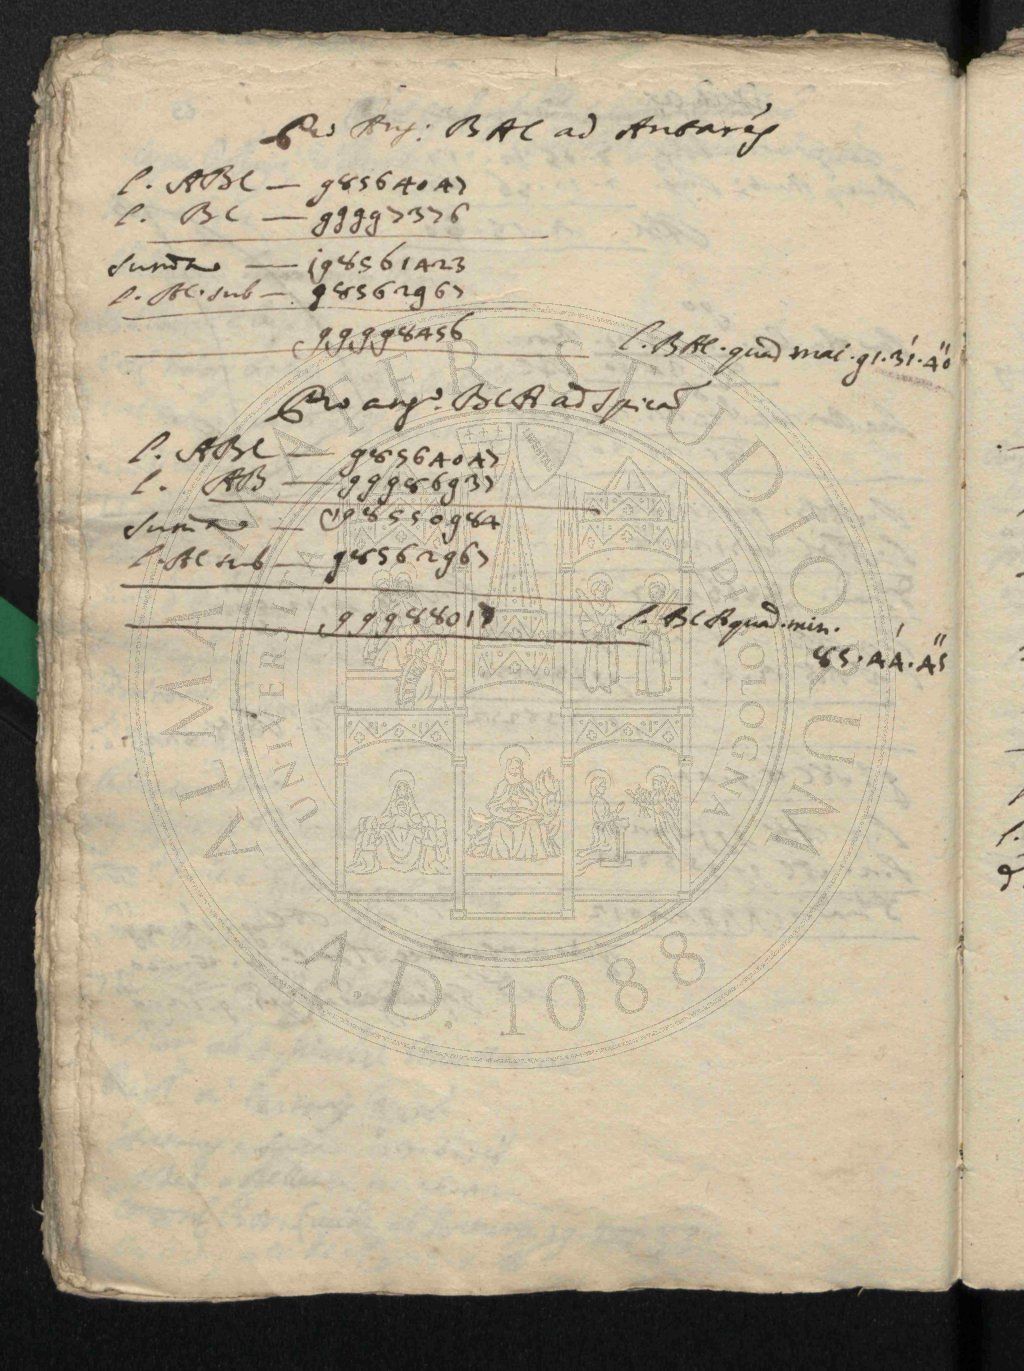 Pro Ang: BAC ad Antarẽ
l. ABC — 98564047
l. BC — 99997376
Summa — 198561423
l. AC. sub — 98562967
99998456 l. BAC. quad mai. 91. 31'. 40''
Pro ang°. BCA ad Spicã
l. ABC — 98564047
l. AB — 99986937
Summa — 198550984
l. AC sub — 98562967
99988017 l. BCA quad. min.
85. 44'. 45''
ALMA MATER STUDIORUM
UNIVERSITÀ DI BOLOGNA
A.D. 1088